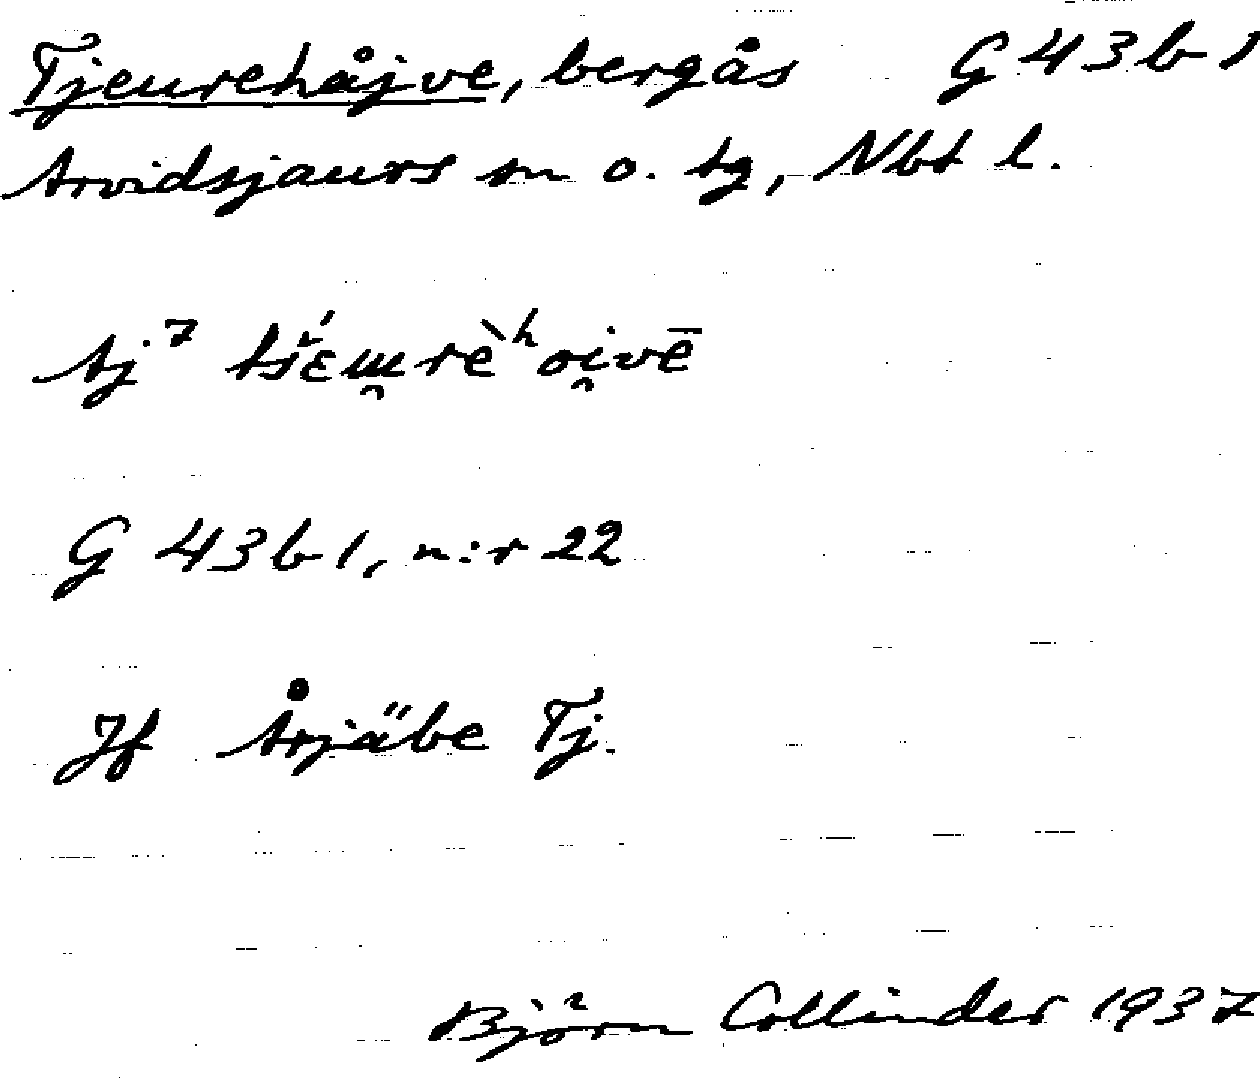 Tjeurehåjve, bergås G 43 b 1
Arvidsjaurs sn o. tg, Nbt l.
Aj⁷
G 43 b 1, n:r 22
Jf Årjäbe Tj.
Björn Collinder 1937